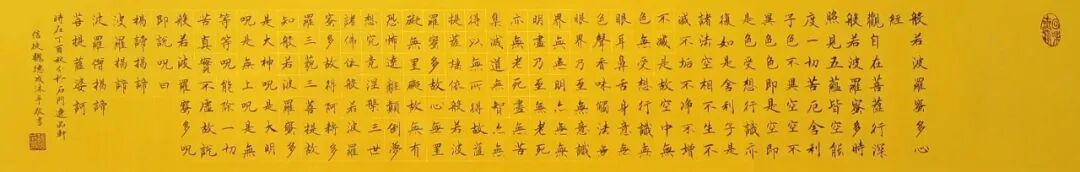 般若波羅蜜多心
經
觀自在菩薩行深
般若波羅蜜多時
照見五蘊皆空
度一切苦厄舍利
子色不異空空不
異色色即是空空即
是色受想行識亦
復如是舍利子是
諸法空相不生不
滅不垢不淨不增
不減是故空中無
色無受想行識無
眼耳鼻舌身意無
色聲香味觸法無
眼界乃至無意識
界無無明亦無無
明盡乃至無老死
亦無老死盡無苦
集滅道無智亦無
得以無所得故菩
提薩埵依般若波
羅蜜多故心無罣
礙無罣礙故無有
恐怖遠離顛倒夢
想究竟涅槃三世
諸佛依般若波羅
蜜多故得阿耨多
羅三藐三菩提故
知般若波羅蜜多
是大神呪是大明
呪是無上呪是無
等等呪能除一切
苦真實不虛故說
般若波羅蜜多呪
即說呪曰
揭諦揭諦
波羅揭諦
波羅僧揭諦
菩提薩婆訶
時在丁酉秋石門逸品軒
信徒魏德敬書